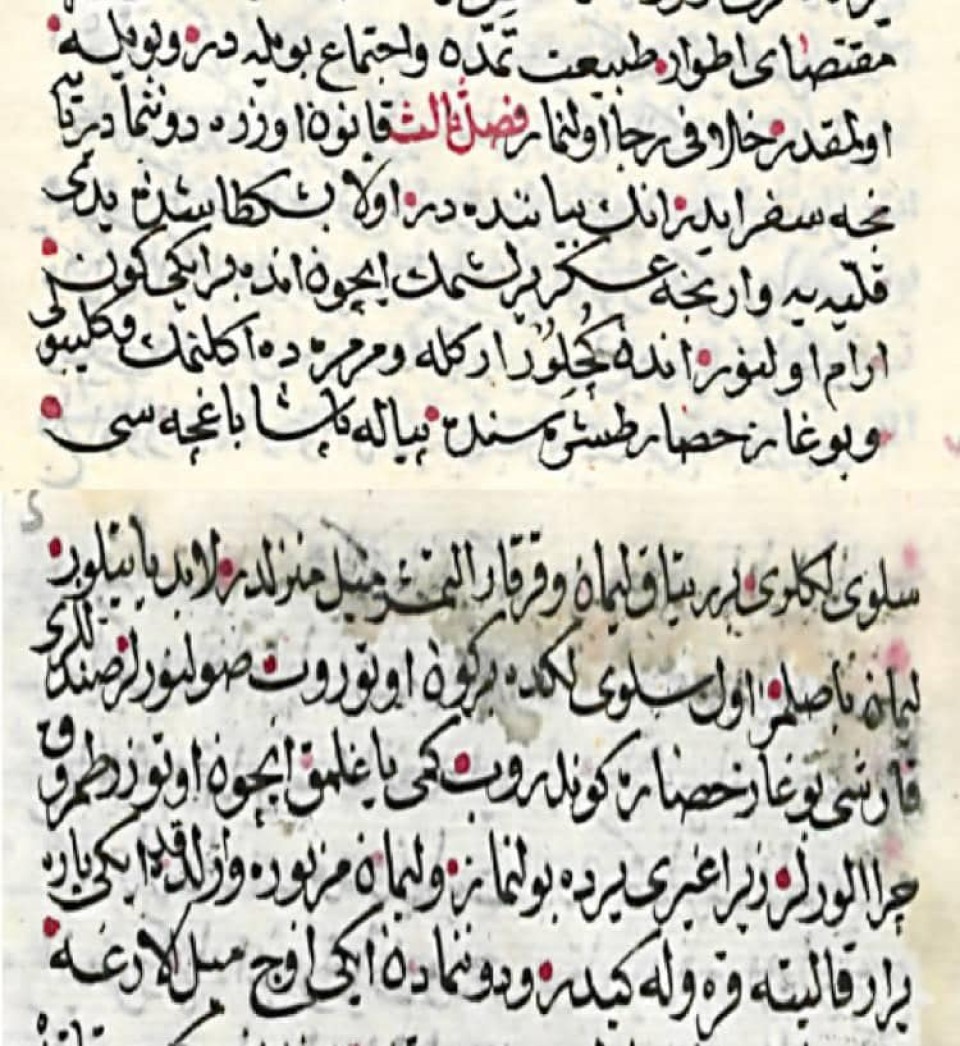 مقتضای اطوار طبیعت تمدّه واجتماع بویله در وبویله
اولمقدر خلافی رجا اولنماز فصل ثالث قانون اوزره دوننما دریایه
نجه سفر ایدر انك بیاننده در اولا بشكطاشدن یدی
قلّیه یه وارنجه عسكر یرلشمك ایچون انده بر ایكی كون
ارام اولنور اندن كچلور اركله ومرمره ده اكلنمك وكلیبولی
وبوغاز حصار طشره سندن پیاله پاشا باغچه سی
سلوی لكلری بریتاق لیمان وقرقار التمش میل منزلدر لابد یاتیلور
لیمانه باصلمز اول سلوی لكده بركون اوتوروب صو لنورلر صندللری
قارشی بوغاز حصارنه كوندروب كمی یاغلمق ایچون اوتوز طرق
چرا الورلر زیرا غیری یرده بولنماز ولیمان مزبوره وارلدقده ایكی پاره
یرار قالیته قره وله كیدر ودوننمادن ایكی اوچ میل لارغه